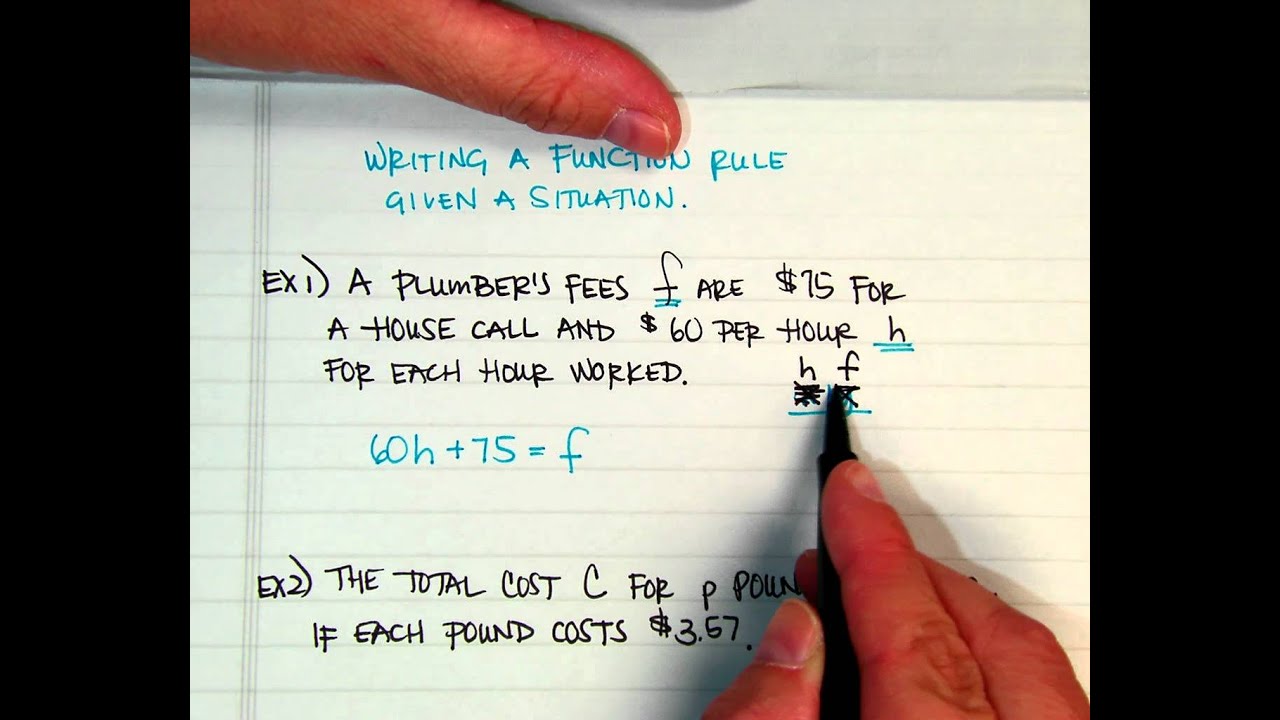 WRITING A FUNCTION RULE
GIVEN A SITUATION.
EX1) A PLUMBER'S FEES f ARE $75 FOR
A HOUSE CALL AND $60 PER HOUR h
FOR EACH HOUR WORKED.
h f
60h + 75 = f
EX2) THE TOTAL COST C FOR p
IF EACH POUND COSTS $3.57.